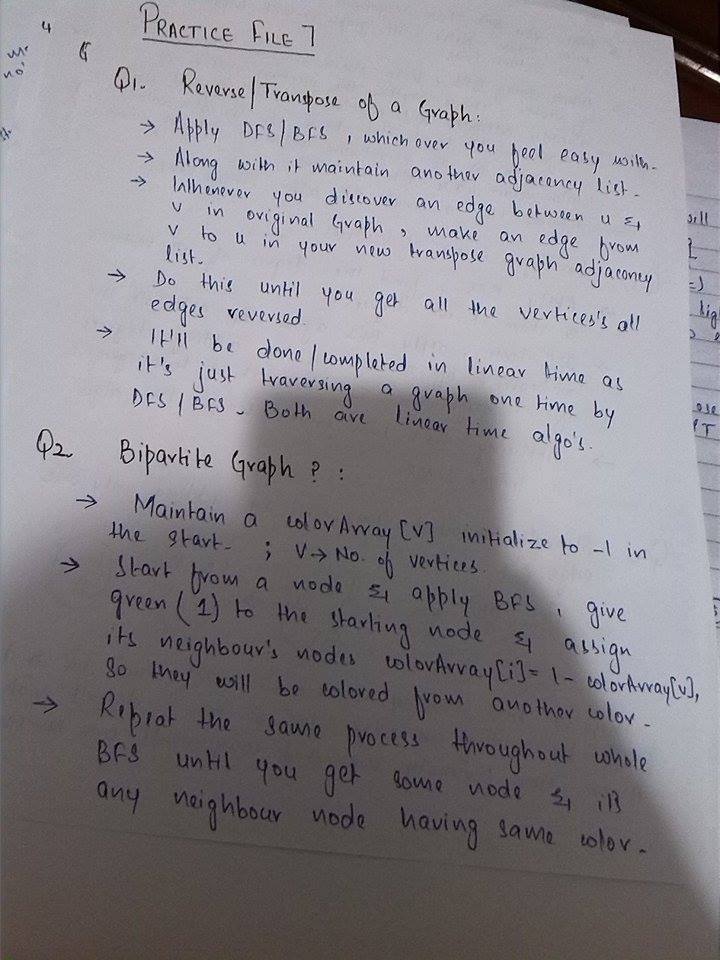 PRACTICE FILE 7
Q1. Reverse/Transpose of a Graph:
→ Apply DFS/BFS, which over you feel easy with.
→ Along with it maintain another adjacency list.
→ Whenever you discover an edge between u &
v in original Graph, make an edge from
v to u in your new transpose graph adjacency
list.
→ Do this until you get all the vertices's all
edges reversed.
→ It'll be done/completed in linear time as
it's just traversing a graph one time by
DFS/BFS. Both are linear time algo's.
Q2 Bipartite Graph? :
→ Maintain a colorArray[V] initialize to -1 in
the start. ; V → No. of vertices.
→ Start from a node & apply BFS, give
green (1) to the starting node & assign
its neighbour's nodes colorArray[i] = 1 - colorArray[u],
so they will be colored from another color.
→ Repeat the same process throughout whole
BFS until you get some node & it's
any neighbour node having same color.